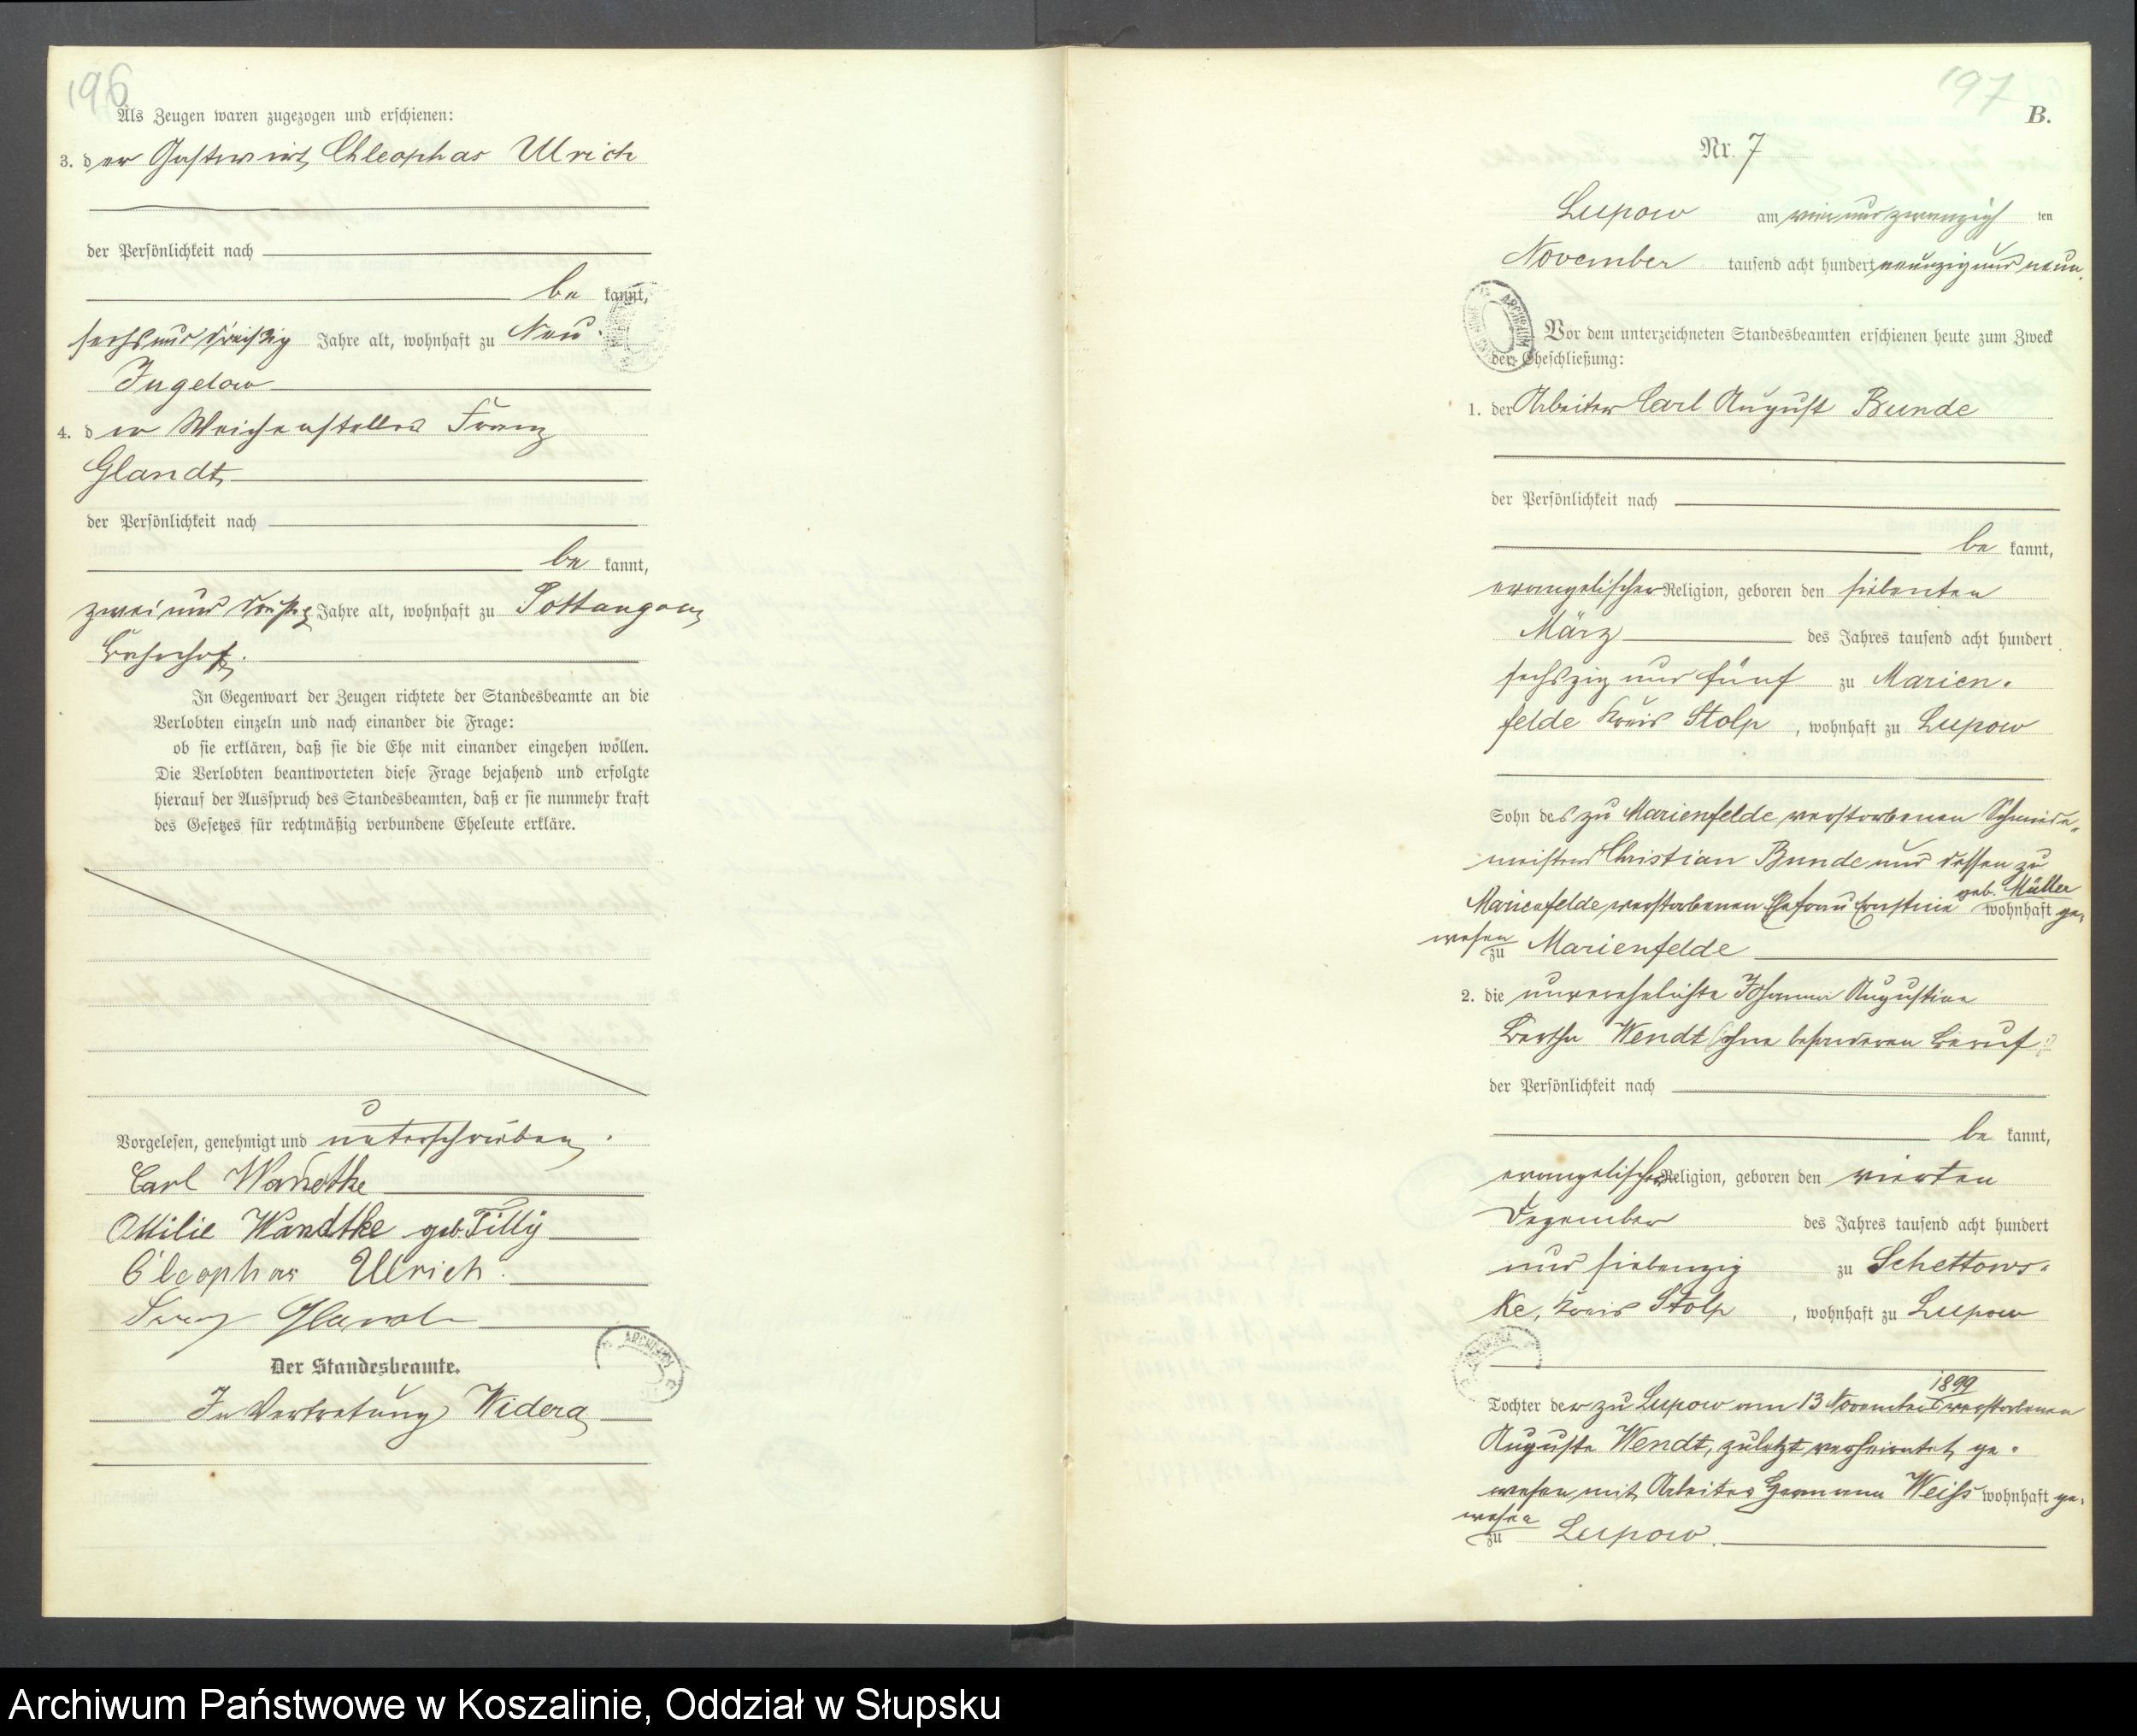 196
Als Zeugen waren zugezogen und erschienen:
3. der Gastwirt Chleophas Ulrich
der Persönlichkeit nach
be kannt,
sechsunddreißig Jahre alt, wohnhaft zu Neu-
Jugelow
4. der Weichensteller Franz
Glandt
der Persönlichkeit nach
be kannt,
zweiunddreißig Jahre alt, wohnhaft zu Pottangow
Bahnhof.
In Gegenwart der Zeugen richtete der Standesbeamte an die
Verlobten einzeln und nach einander die Frage:
ob sie erklären, daß sie die Ehe mit einander eingehen wollen.
Die Verlobten beantworteten diese Frage bejahend und erfolgte
hierauf der Ausspruch des Standesbeamten, daß er sie nunmehr kraft
des Gesetzes für rechtmäßig verbundene Eheleute erkläre.
Vorgelesen, genehmigt und unterschrieben.
Carl Wandtke
Ottilie Wandtke geb. Tilly
Cleophas Ulrich.
Franz Glandt
Der Standesbeamte.
In Vertretung Widera
197
B.
Nr. 7
Lupow am vierundzwanzig ten
November tausend acht hundert neunzig und neun.
Vor dem unterzeichneten Standesbeamten erschienen heute zum Zweck
der Eheschließung:
1. der Arbeiter Carl August Bunde
der Persönlichkeit nach
be kannt,
evangelischer Religion, geboren den siebenten
März des Jahres tausend acht hundert
sechszig und fünf zu Marien-
felde Kreis Stolp, wohnhaft zu Lupow
Sohn des zu Marienfelde verstorbenen Schmiede-
meisters Christian Bunde und dessen zu
Marienfelde verstorbenen Ehefrau Ernstine geb. Müller wohnhaft ge-
wesen zu Marienfelde
2. die unverehelichte Johanna Augustine
Bertha Wendt (ohne besonderen Beruf)
der Persönlichkeit nach
be kannt,
evangelischer Religion, geboren den vierten
Dezember des Jahres tausend acht hundert
und siebenzig zu Schettows-
ke, Kreis Stolp, wohnhaft zu Lupow
Tochter der zu Lupow am 13 November 1899 verstorbenen
Auguste Wendt, zuletzt verheiratet ge-
wesen mit Arbeiter Hermann Weiss wohnhaft ge-
wesen zu Lupow.
Archiwum Państwowe w Koszalinie, Oddział w Słupsku